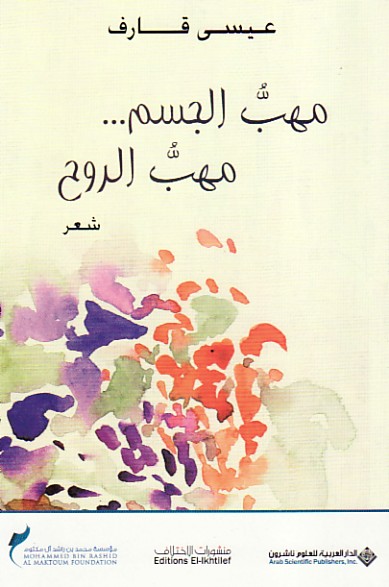 عيسى قارف
مهبُّ الجسم...
مهبُّ الروح
شعر
مؤسسة محمد بن راشد آل مكتوم
MOHAMMED BIN RASHID
AL MAKTOUM FOUNDATION
منشورات الاختلاف
Editions El-Ikhtilef
الدار العربية للعلوم ناشرون
Arab Scientific Publishers, Inc.